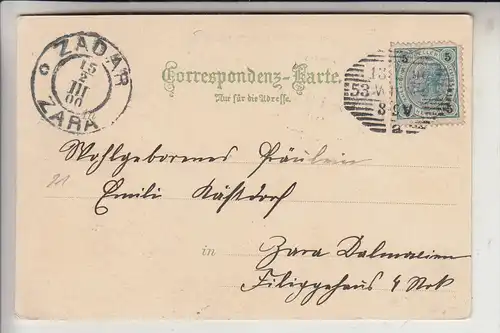 ZADAR
15
III
00
ZARA
Correspondenz-Karte.
Nur für die Adresse.
5 5
13
53
8
Wohlgeborenes Fräulein
Emili
in Zara Dalmatien
4 Stok